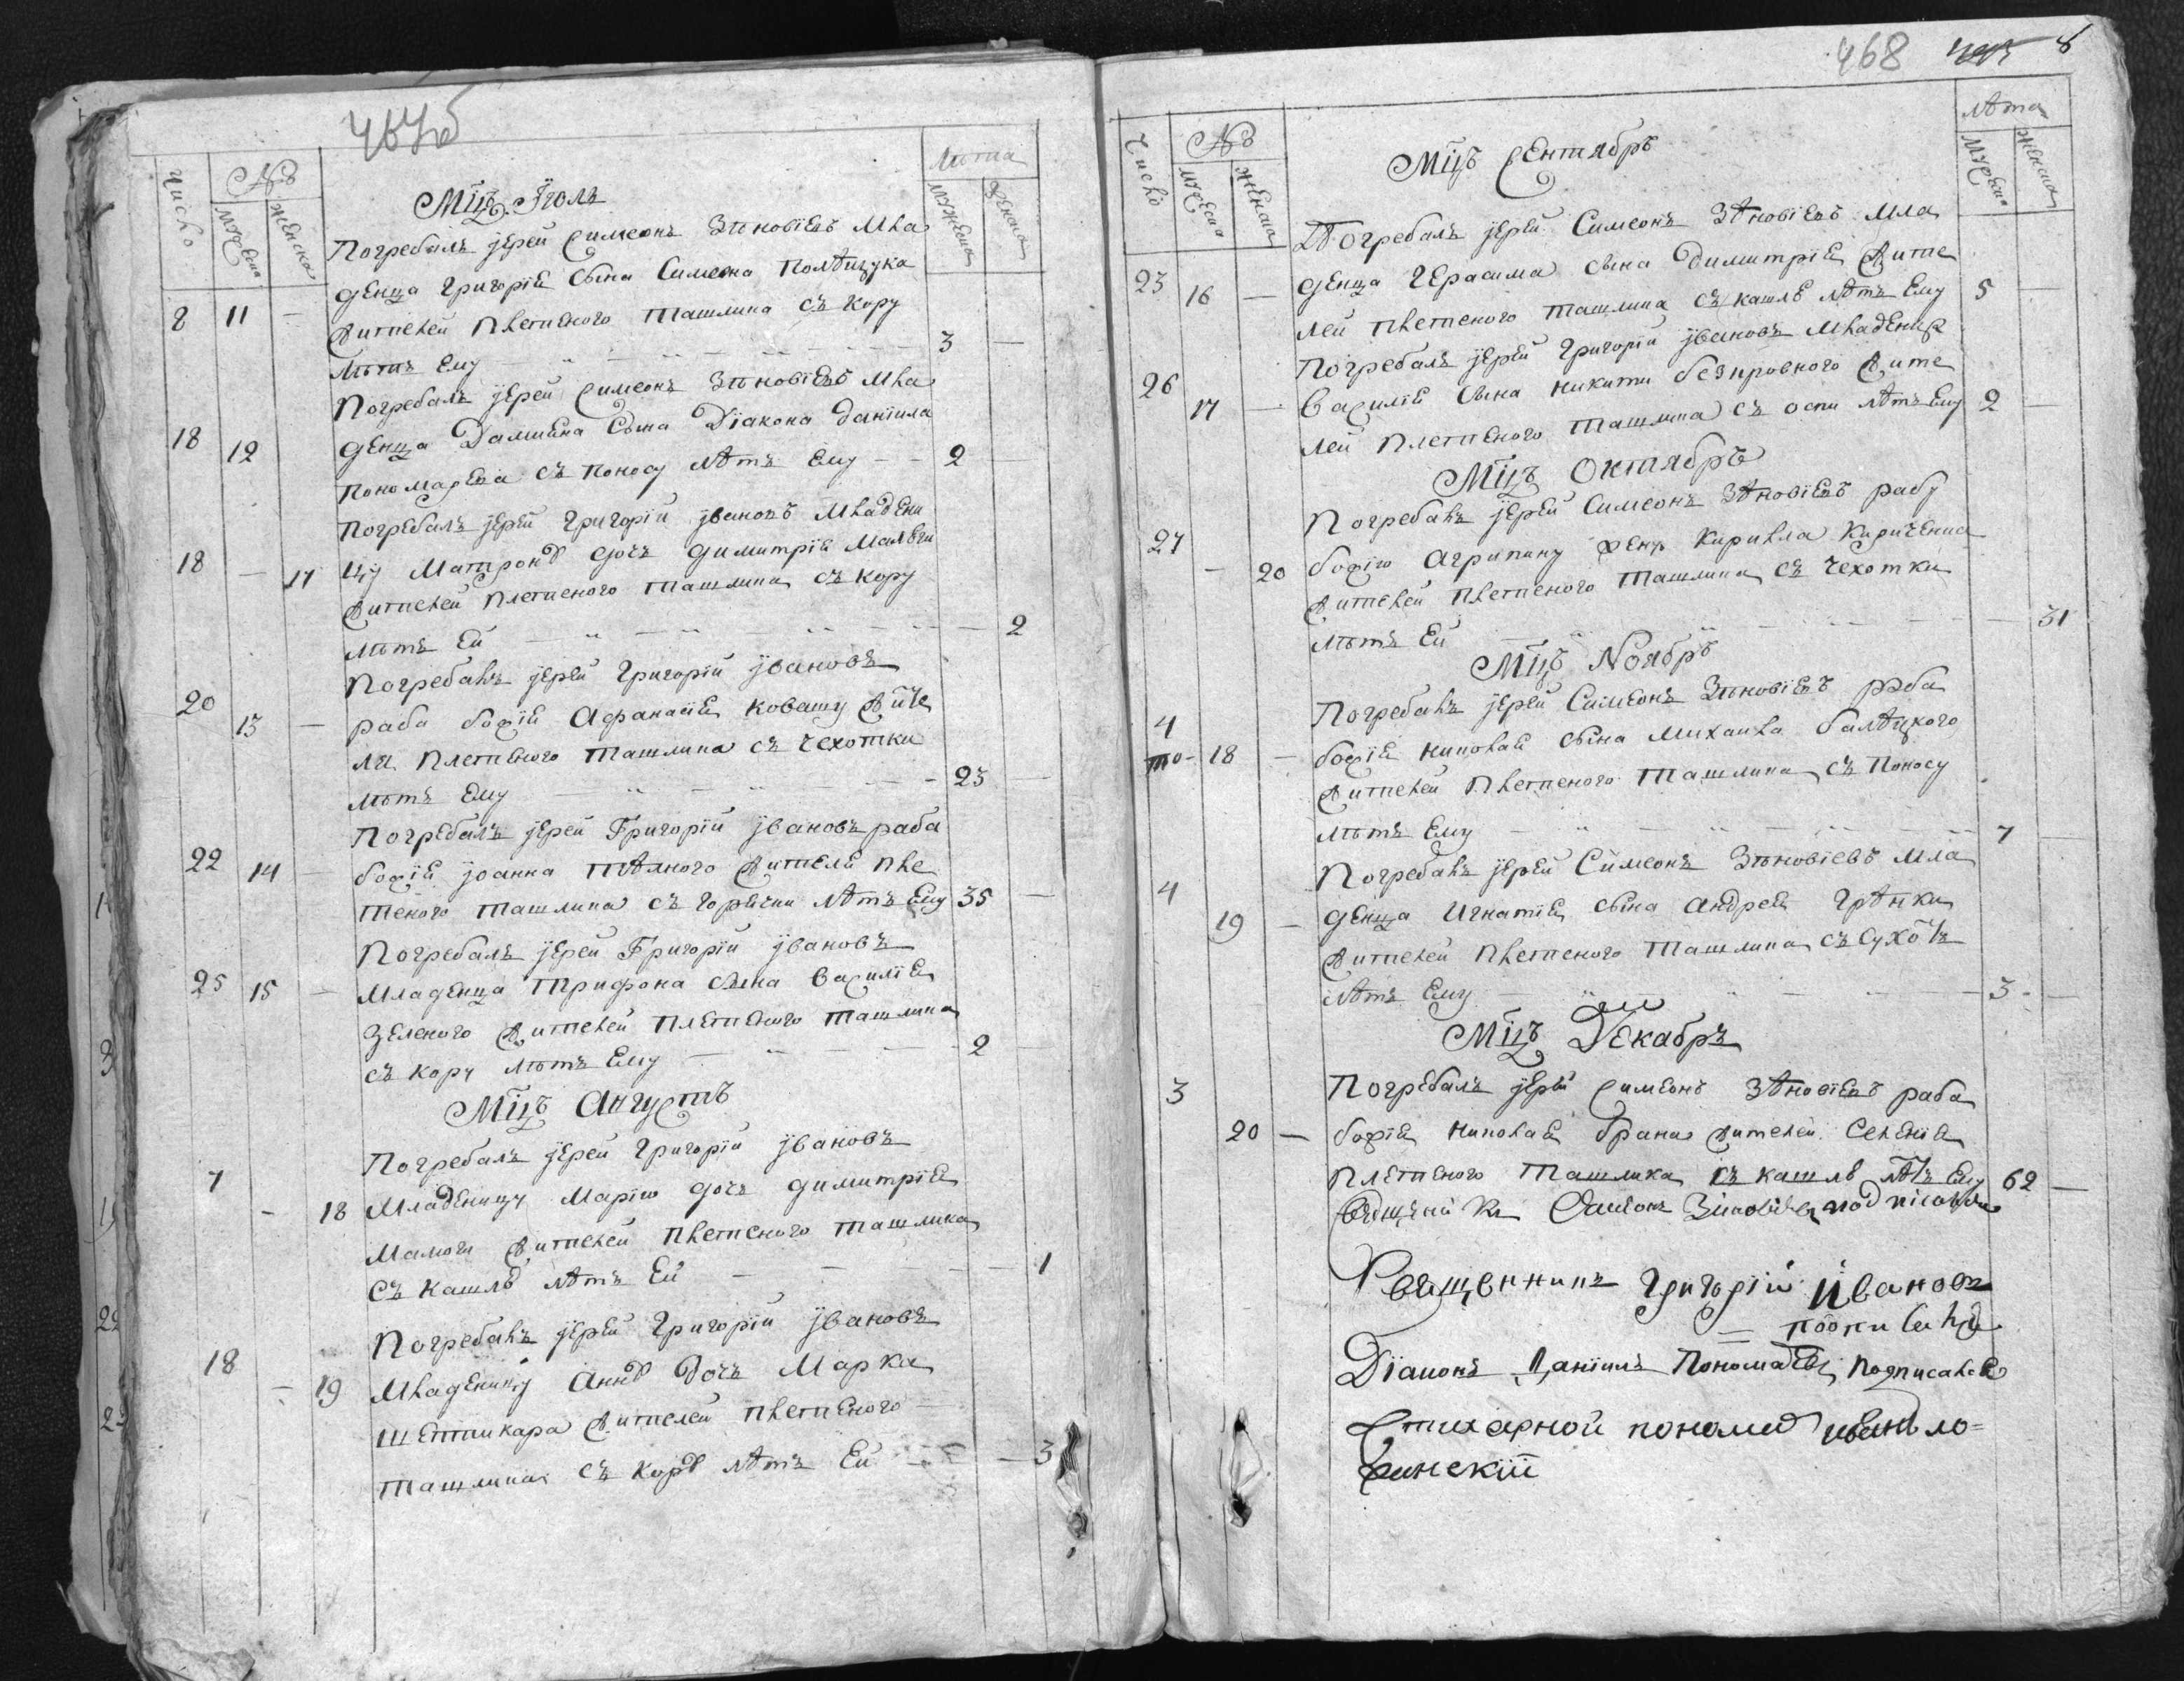 467об
Число
№
мужеска
женска
Лѣта
мужеска
женска
Мцъ Іюль
Погребалъ іерей Симеонъ Зѣновіевъ мла
8 11 — денца Григорія сына Симеона Полѣщука
жителей Плетеного Ташлика съ кору
лѣтъ ему 3 —
Погребалъ іерей Симеонъ Зѣновіевъ мла
18 12 денца Даміяна сына Діакона Даніила
Пономарева съ поносу лѣтъ ему 2 —
Погребалъ іерей Григорій Ивановъ младени
18 — 17 цу Матрону дочь Димитрія
жителей Плетеного Ташлика съ кору
лѣтъ ей — 2
Погребалъ іерей Григорій Ивановъ
20 13 — раба божія Афанасія Ковашу жите
ля Плетеного Ташлика съ чехотки
лѣтъ ему 23 —
Погребалъ іерей Григорій Ивановъ раба
22 14 — божія Іоанна жителя Пле
теного Ташлика съ горячки лѣтъ ему 35 —
Погребалъ іерей Григорій Ивановъ
25 15 — младенца Трифона сына Василія
Зеленого жителей Плетеного Ташлика
съ кору лѣтъ ему 2
Мцъ Августъ
Погребалъ іерей Григорій Ивановъ
7 — 18 младеницу Марію дочь Димитрія
Мамоги жителей Плетеного Ташлика
съ кашлю лѣтъ ей — 1
Погребалъ іерей Григорій Ивановъ
18 — 19 младеницу Анну дочь Марка
Шептикара жителей Плетеного
Ташлика съ кору лѣтъ ей — 3
468
Число
№
мужеска
женска
лѣта
мужеска
женска
Мцъ Сентябръ
Погребалъ іерей Симеонъ Зѣновіевъ мла
23 16 — денца Герасима сына Димитрія жите
лей Плетеного Ташлика съ кашлю лѣтъ ему 5 —
Погребалъ іерей Григорій Ивановъ младенца
26 17 — Василія сына Никити Безкровного жите
лей Плетеного Ташлика съ оспи лѣтъ ему 2 —
Мцъ Октябръ
Погребалъ іерей Симеонъ Зѣновіевъ рабу
27 — 20 божію Агрипину жену Кирилла Кириченка
жителей Плетеного Ташлика съ чехотки
лѣтъ ей — 31
Мцъ Ноябръ
Погребалъ іерей Симеонъ Зѣновіевъ раба
4 то- 18 — божія Николая сына Михаила Балѣцкого
жителей Плетеного Ташлика съ поносу
лѣтъ ему 7
Погребалъ іерей Симеонъ Зѣновіевъ мла
4 19 — денца Игнатія сына Андрея Грѣнки
жителей Плетеного Ташлика съ сухотъ
лѣтъ ему 3 —
Мцъ Декабръ
3 Погребалъ іерей Симеонъ Зѣновіевъ раба
20 — божія Николая жителей Селенія
Плетеного Ташлика съ кашлю лѣтъ ему 62 —
Симеонъ Зіновіевъ подписался
Священникъ Григорій Ивановъ
подписался
Діаконъ Даніилъ Пономаревъ подписался
Стихарной пономар